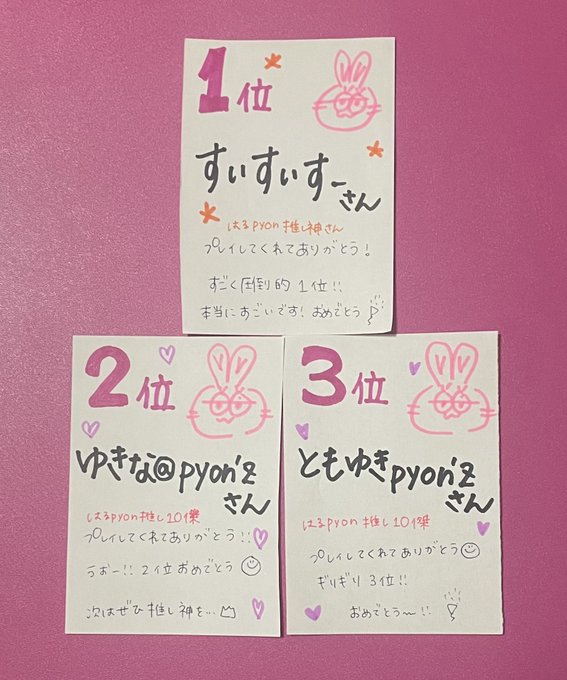 1位
すいすいすー
さん
はるpyon推し神さん
プレイしてくれてありがとう!
すごく圧倒的1位!!
本当にすごいです!おめでとう
2位
ゆきな@pyon'z
さん
はるpyon推し10傑
プレイしてくれてありがとう!!
うおー!!2位おめでとう
次はぜひ推し神を…
3位
ともゆきpyon'z
さん
はるpyon推し10傑
プレイしてくれてありがとう
ギリギリ3位!!
おめでとう〜!!